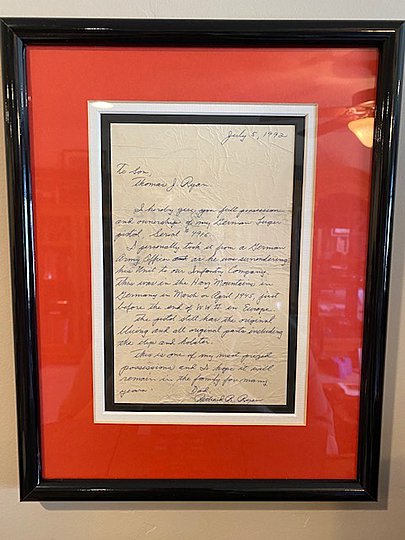 July 5, 1992
To Son,
Thomas J. Ryan
I hereby give you full possession
and ownership of my German Luger
pistol Serial # 4916.
I personally took it from a German
Army Officer as he was surrendering
his Unit to our Infantry Company.
This was in the Harz Mountains in
Germany in March or April 1945 just
before the end of WW II in Europe.
The pistol still has the original
bluing and all original parts including
the clip and holster.
This is one of my most prized
possessions and I hope it will
remain in the family for many
years.
Dad
Richard R. Ryan